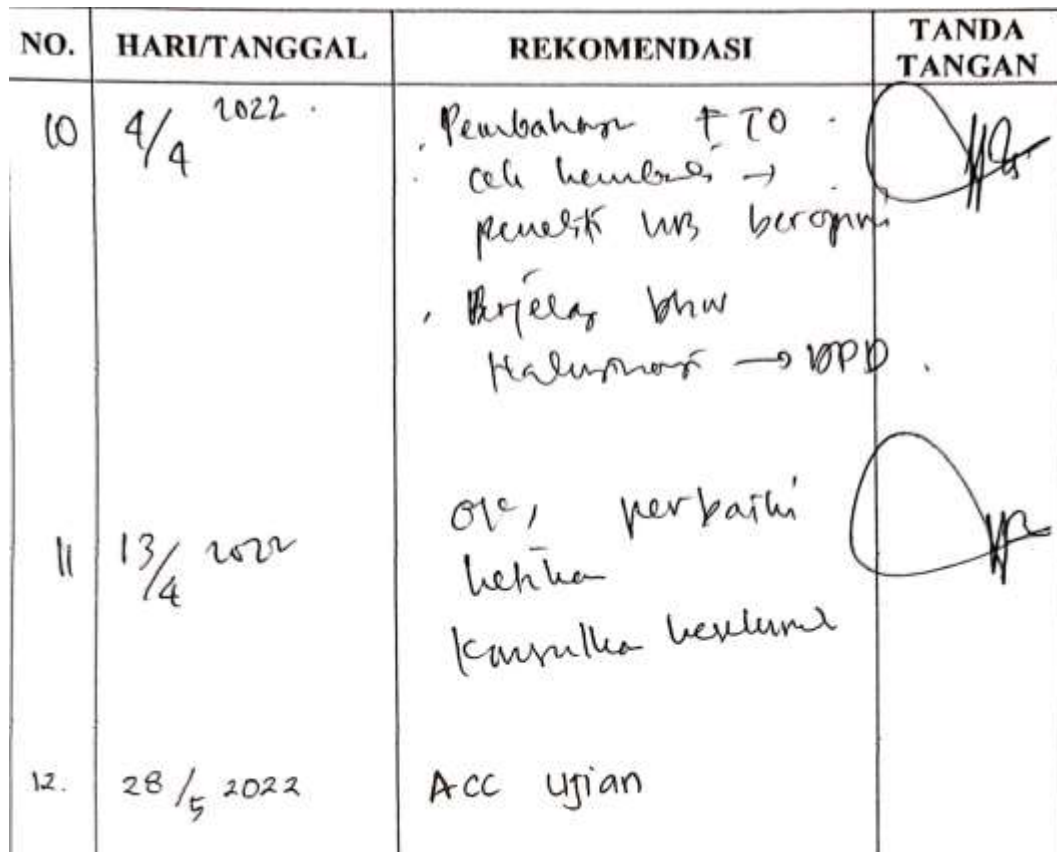 NO. HARI/TANGGAL REKOMENDASI TANDA TANGAN
10 4/4 2022 . Pembahasan FTO
cek kembali →
peneliti beropini
. Perjelas bhw
Halusinasi →
11 13/4 2022 ok, perbaiki
ketika
Konsulka keseluruh
12. 28/5 2022 ACC Ujian